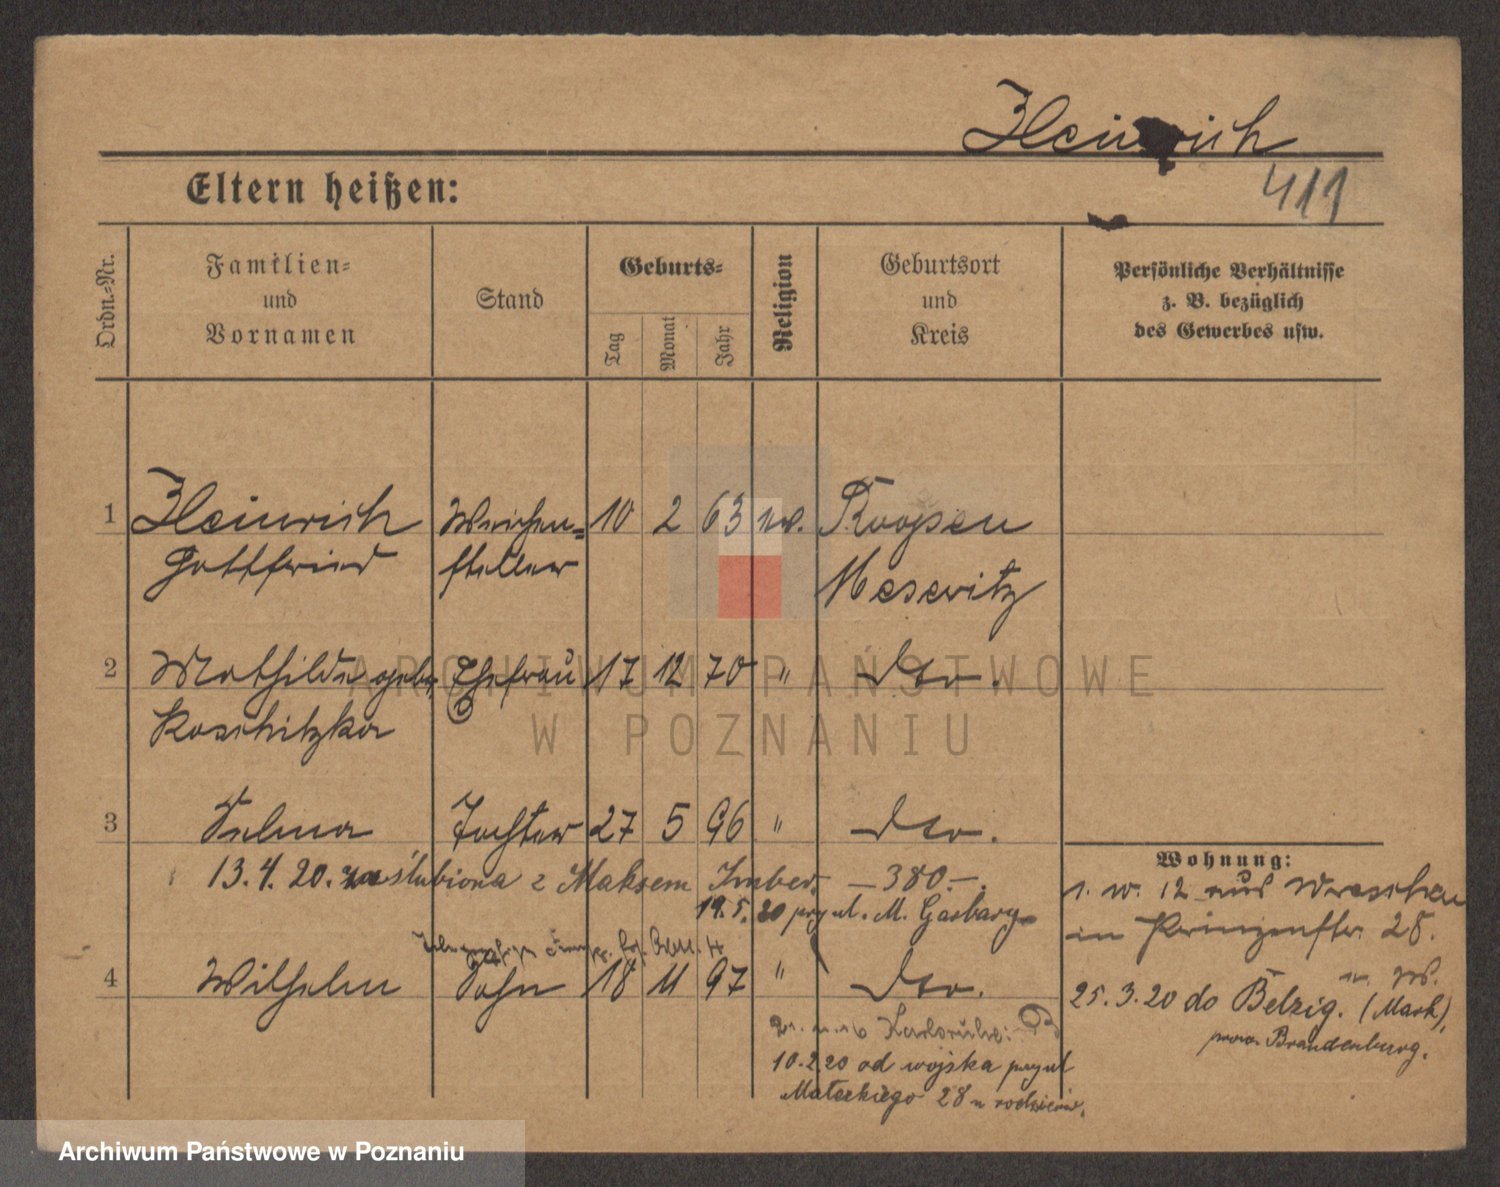 Heinrich
411
Eltern heißen:
Ordn.-Nr.
Familien-
und
Vornamen
Stand
Geburts-
Tag
Monat
Jahr
Religion
Geburtsort
und
Kreis
Persönliche Verhältnisse
z. B. bezüglich
des Gewerbes usw.
1 Heinrich Weichen- 10 2 63 ev. Koopen
Gottfried steller Meseritz
2 Mathilde geb. Ehefrau 17 12 70 " dto.
Koschitzka
3 Selma Tochter 27 5 96 " dto.
13.4.20. zaślubiona z Maksem —380.—.
19.5.20 przy ul. M. Garbary
4 Wilhelm Sohn 18 11 97 " dto.
Karlsruhe:
10.2.20 od wojska przy ul
Małeckiego 28 u rodziców.
Wohnung:
1. 12 aus Wreschen
in Prinzenstr. 28.
25.3.20 do Belzig. (Mark),
prow. Brandenburg.
ARCHIWUM PAŃSTWOWE
W POZNANIU
Archiwum Państwowe w Poznaniu